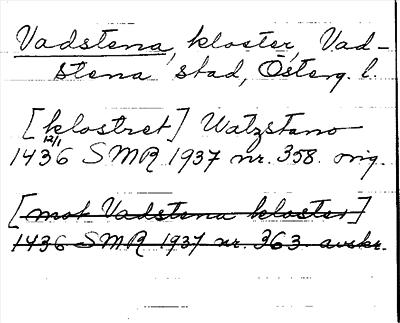 Vadstena, kloster, Vad-
stena stad, Österg. l.
[klostret] Watzstano
12/1
1436 SMR 1937 nr. 358. orig.
[mot Vadstena kloster]
1436 SMR 1937 nr. 363. avskr.